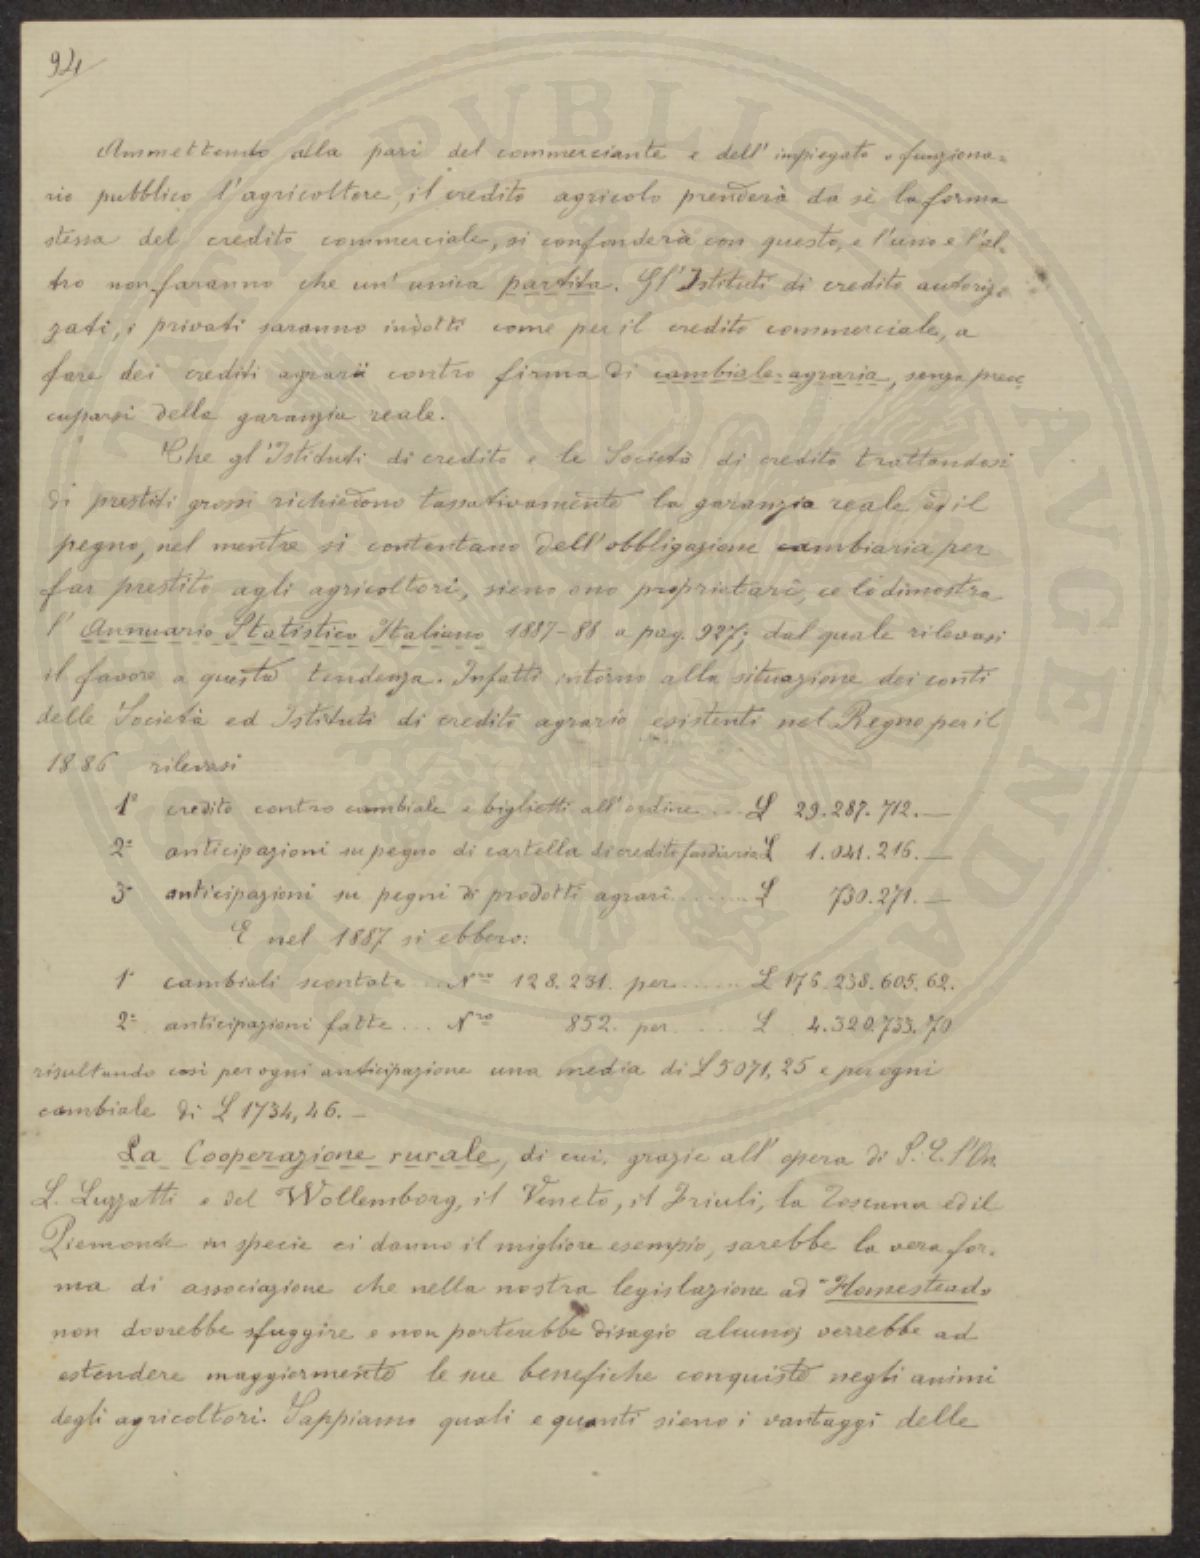 94
Ammettendo alla pari del commerciante e dell' impiegato o funziona=
rio pubblico l'agricoltore, il credito agricolo prenderà da sè la forma
stessa del credito commerciale, si confonderà con questo, e l'uno e l'al=
tro non faranno che un' unica partita. Gl'Istituti di credito autoriz=
zati, i privati saranno indotti come per il credito commerciale, a
fare dei crediti agrarii contro firma di cambiale agraria, senza preoc
cuparsi della garanzia reale.
Che gl'Istituti di credito e le Società di credito trattandosi
di prestiti grossi richiedono tassativamente la garanzia reale ed il
pegno, nel mentre si contentano dell'obbligazione cambiaria per
far prestito agli agricoltori, sieno o no proprietarî, ce lo dimostra
l' Annuario Statistico Italiano 1887-88 a pag. 927; dal quale rilevasi
il favore a questa tendenza. Infatti intorno alla situazione dei conti
delle Società ed Istituti di credito agrario esistenti nel Regno per il
1886 rilevasi
1º credito contro cambiale e biglietti all'ordine ... £ 29.287.712.—
2º anticipazioni su pegno di cartella di credito fondiario £ 1.041.216.—
3º anticipazioni su pegni di prodotti agrari ........ £ 730.271.—
E nel 1887 si ebbero:
1º cambiali scontate ... Nro 128.231. per ...... £ 176.238.605.62.
2º anticipazioni fatte ... Nro 852. per ..... £ 4.320.733.70
risultando così per ogni anticipazione una media di £ 5071,25 e per ogni
cambiale di £ 1734,46.—
La Cooperazione rurale, di cui, grazie all' opera di S. E. l'On.
L. Luzzatti e del Wollemborg, il Veneto, il Friuli, la Toscana ed il
Piemonte in specie ci danno il migliore esempio, sarebbe la vera for=
ma di associazione che nella nostra legislazione ad "Homestead"
non dovrebbe sfuggire e non porterebbe disagio alcuno; verrebbe ad
estendere maggiormente le sue benefiche conquiste negli animi
degli agricoltori. Sappiamo quali e quanti sieno i vantaggi delle